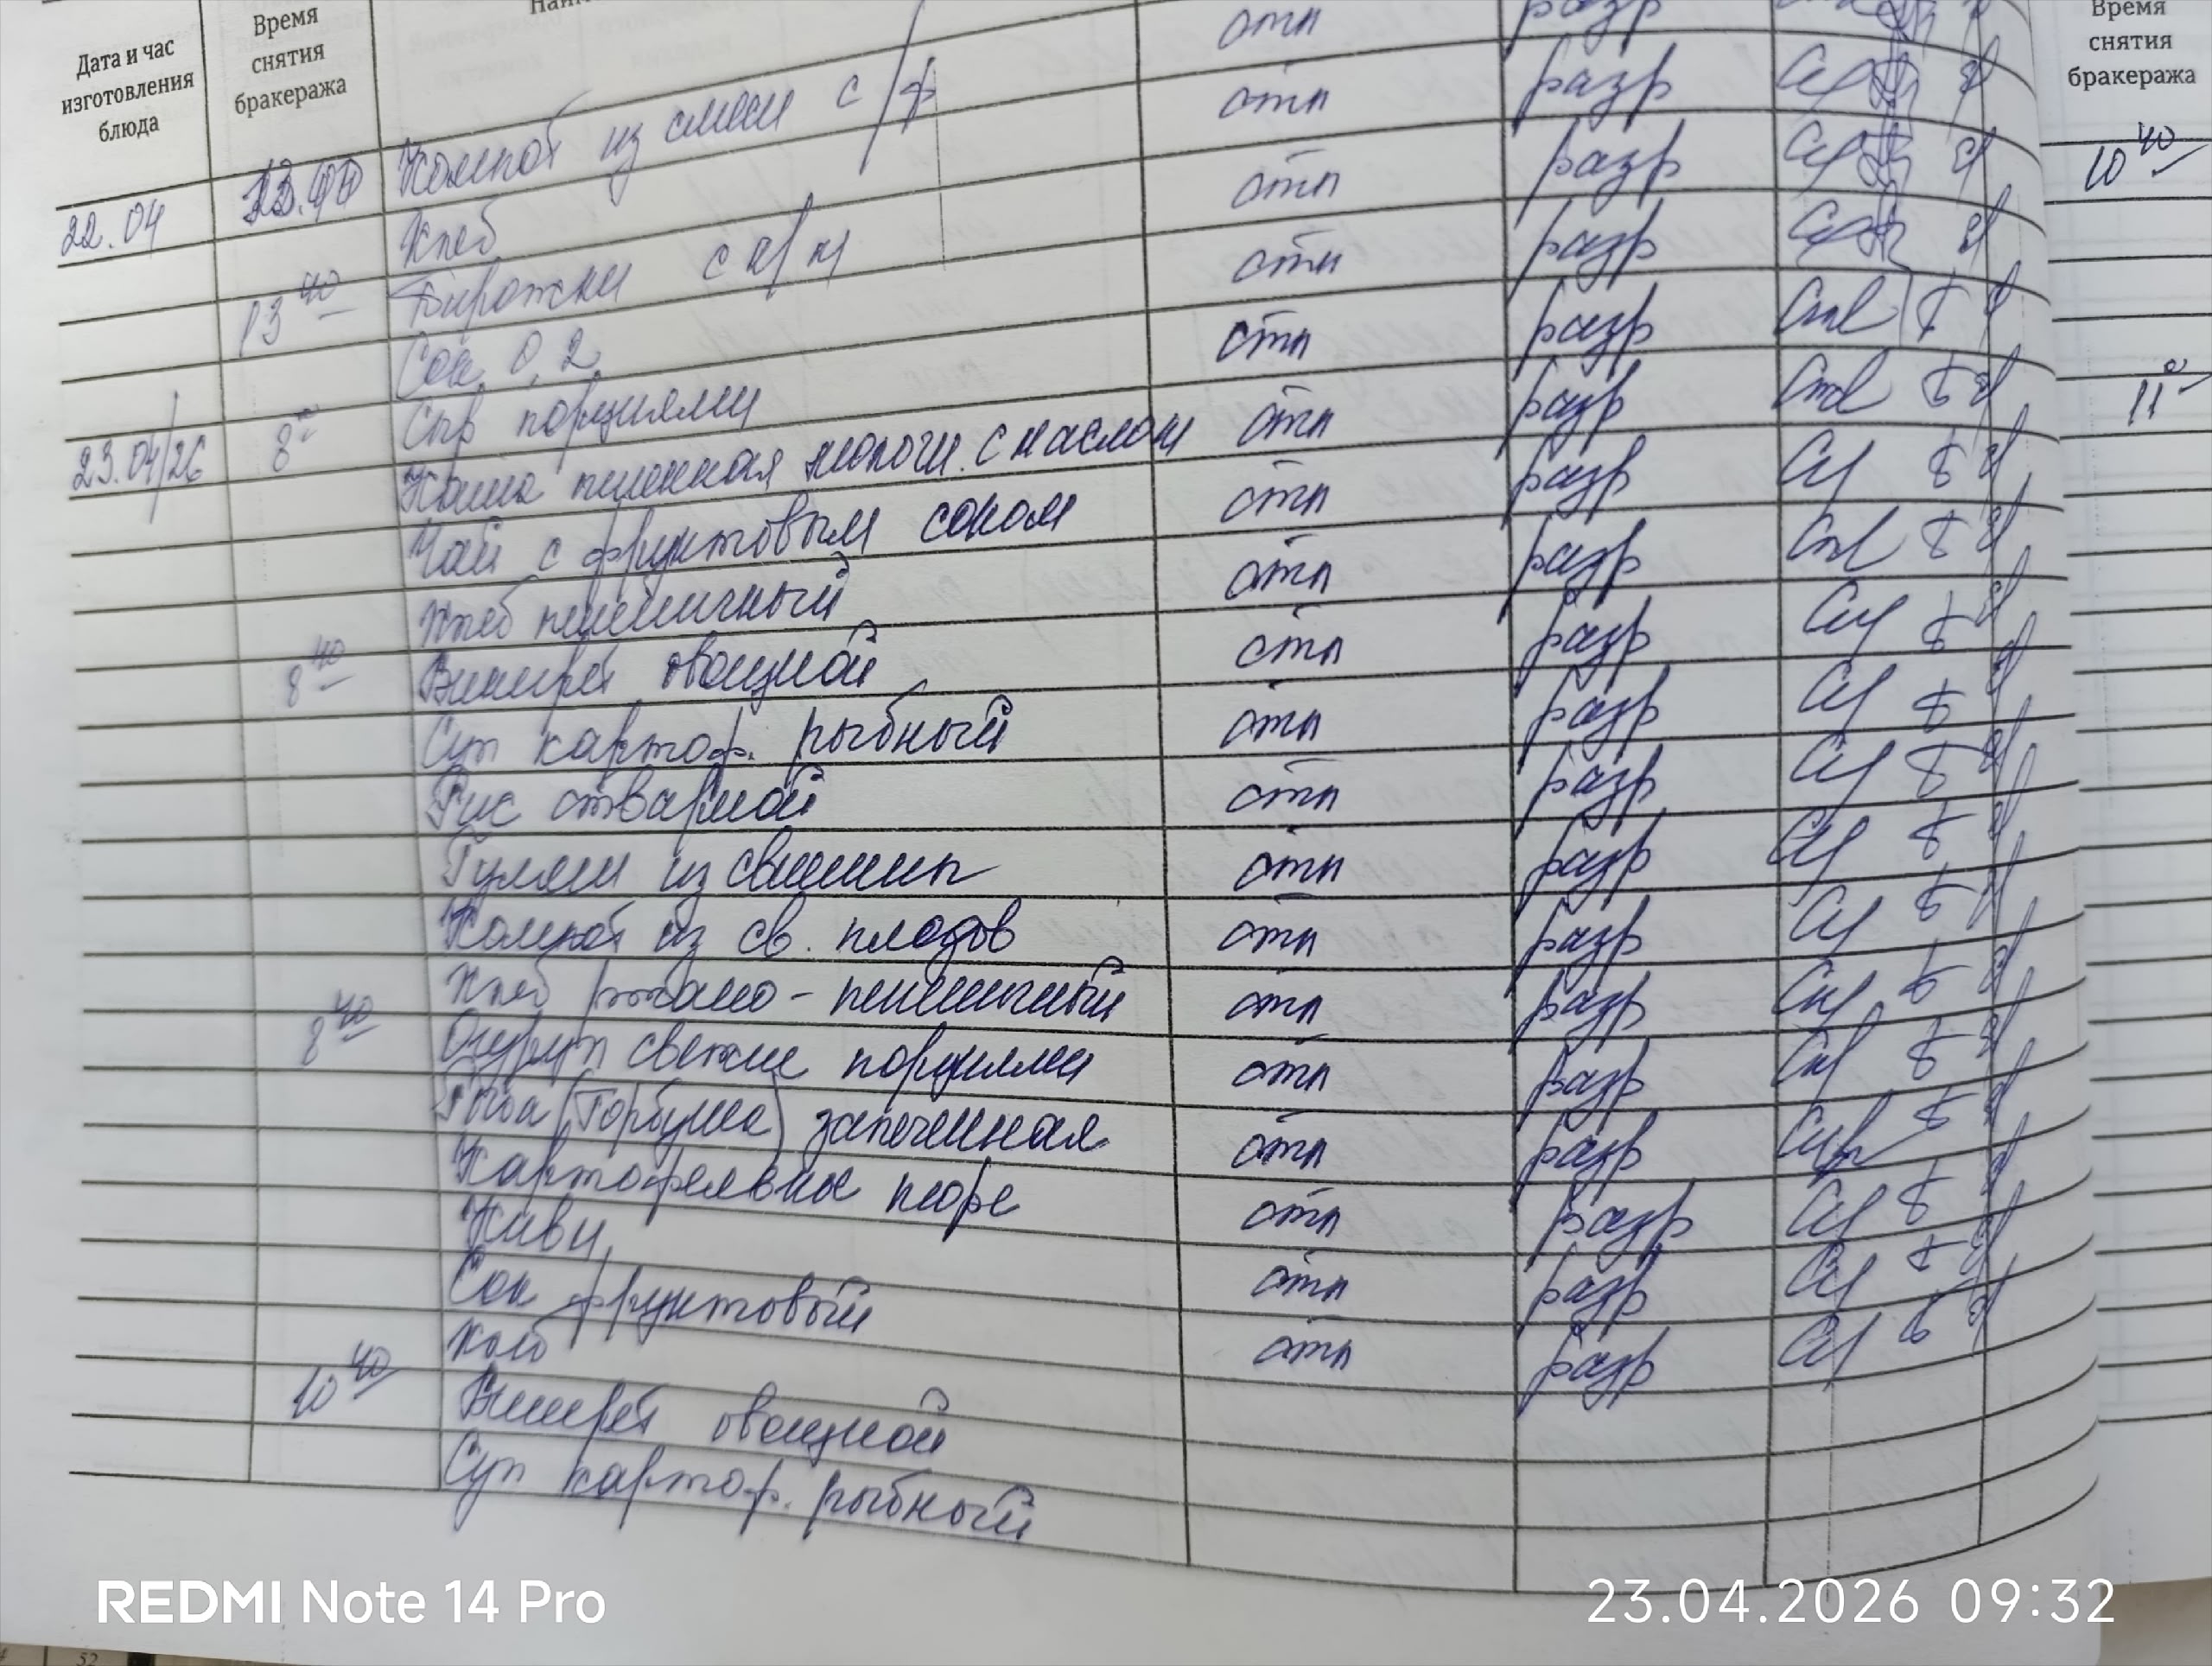 Дата и час изготовления блюда
Время снятия бракеража
Время снятия бракеража
отл разр
22.04 13.40 Компот из смеси с/ф отл разр
Хлеб отл разр
13 40 Пирожки с к/м отл разр
Сок 0,2 отл разр
23.04/26 8 00 Сыр порциями отл разр
Каша пшенная молочн. с маслом отл разр
Чай с фруктовым соком отл разр
Хлеб пшеничный отл разр
8 40 Винегрет овощной отл разр
Суп картоф. рыбный отл разр
Рис отварной отл разр
Гуляш из свинины отл разр
Компот из св. плодов отл разр
Хлеб ржано-пшеничный отл разр
8 40 Огурцы свежие порциями отл разр
Рыба (Горбуша) запеченная отл разр
Картофельное пюре отл разр
Киви отл разр
Сок фруктовый
Хлеб
10 40 Винегрет овощной
Суп картоф. рыбный
10 40
11 00
REDMI Note 14 Pro
23.04.2026 09:32
52